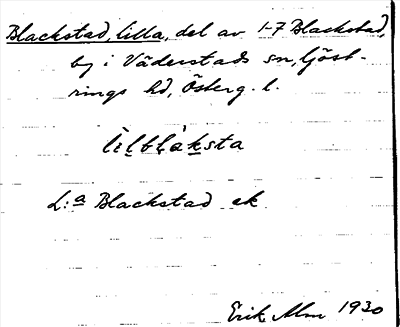 Blackstad, lilla, del av 1-7 Blackstad,
by i Väderstads sn, Göst-
rings hd, Österg. l.
L:a Blackstad ek
Erik Alm 1930